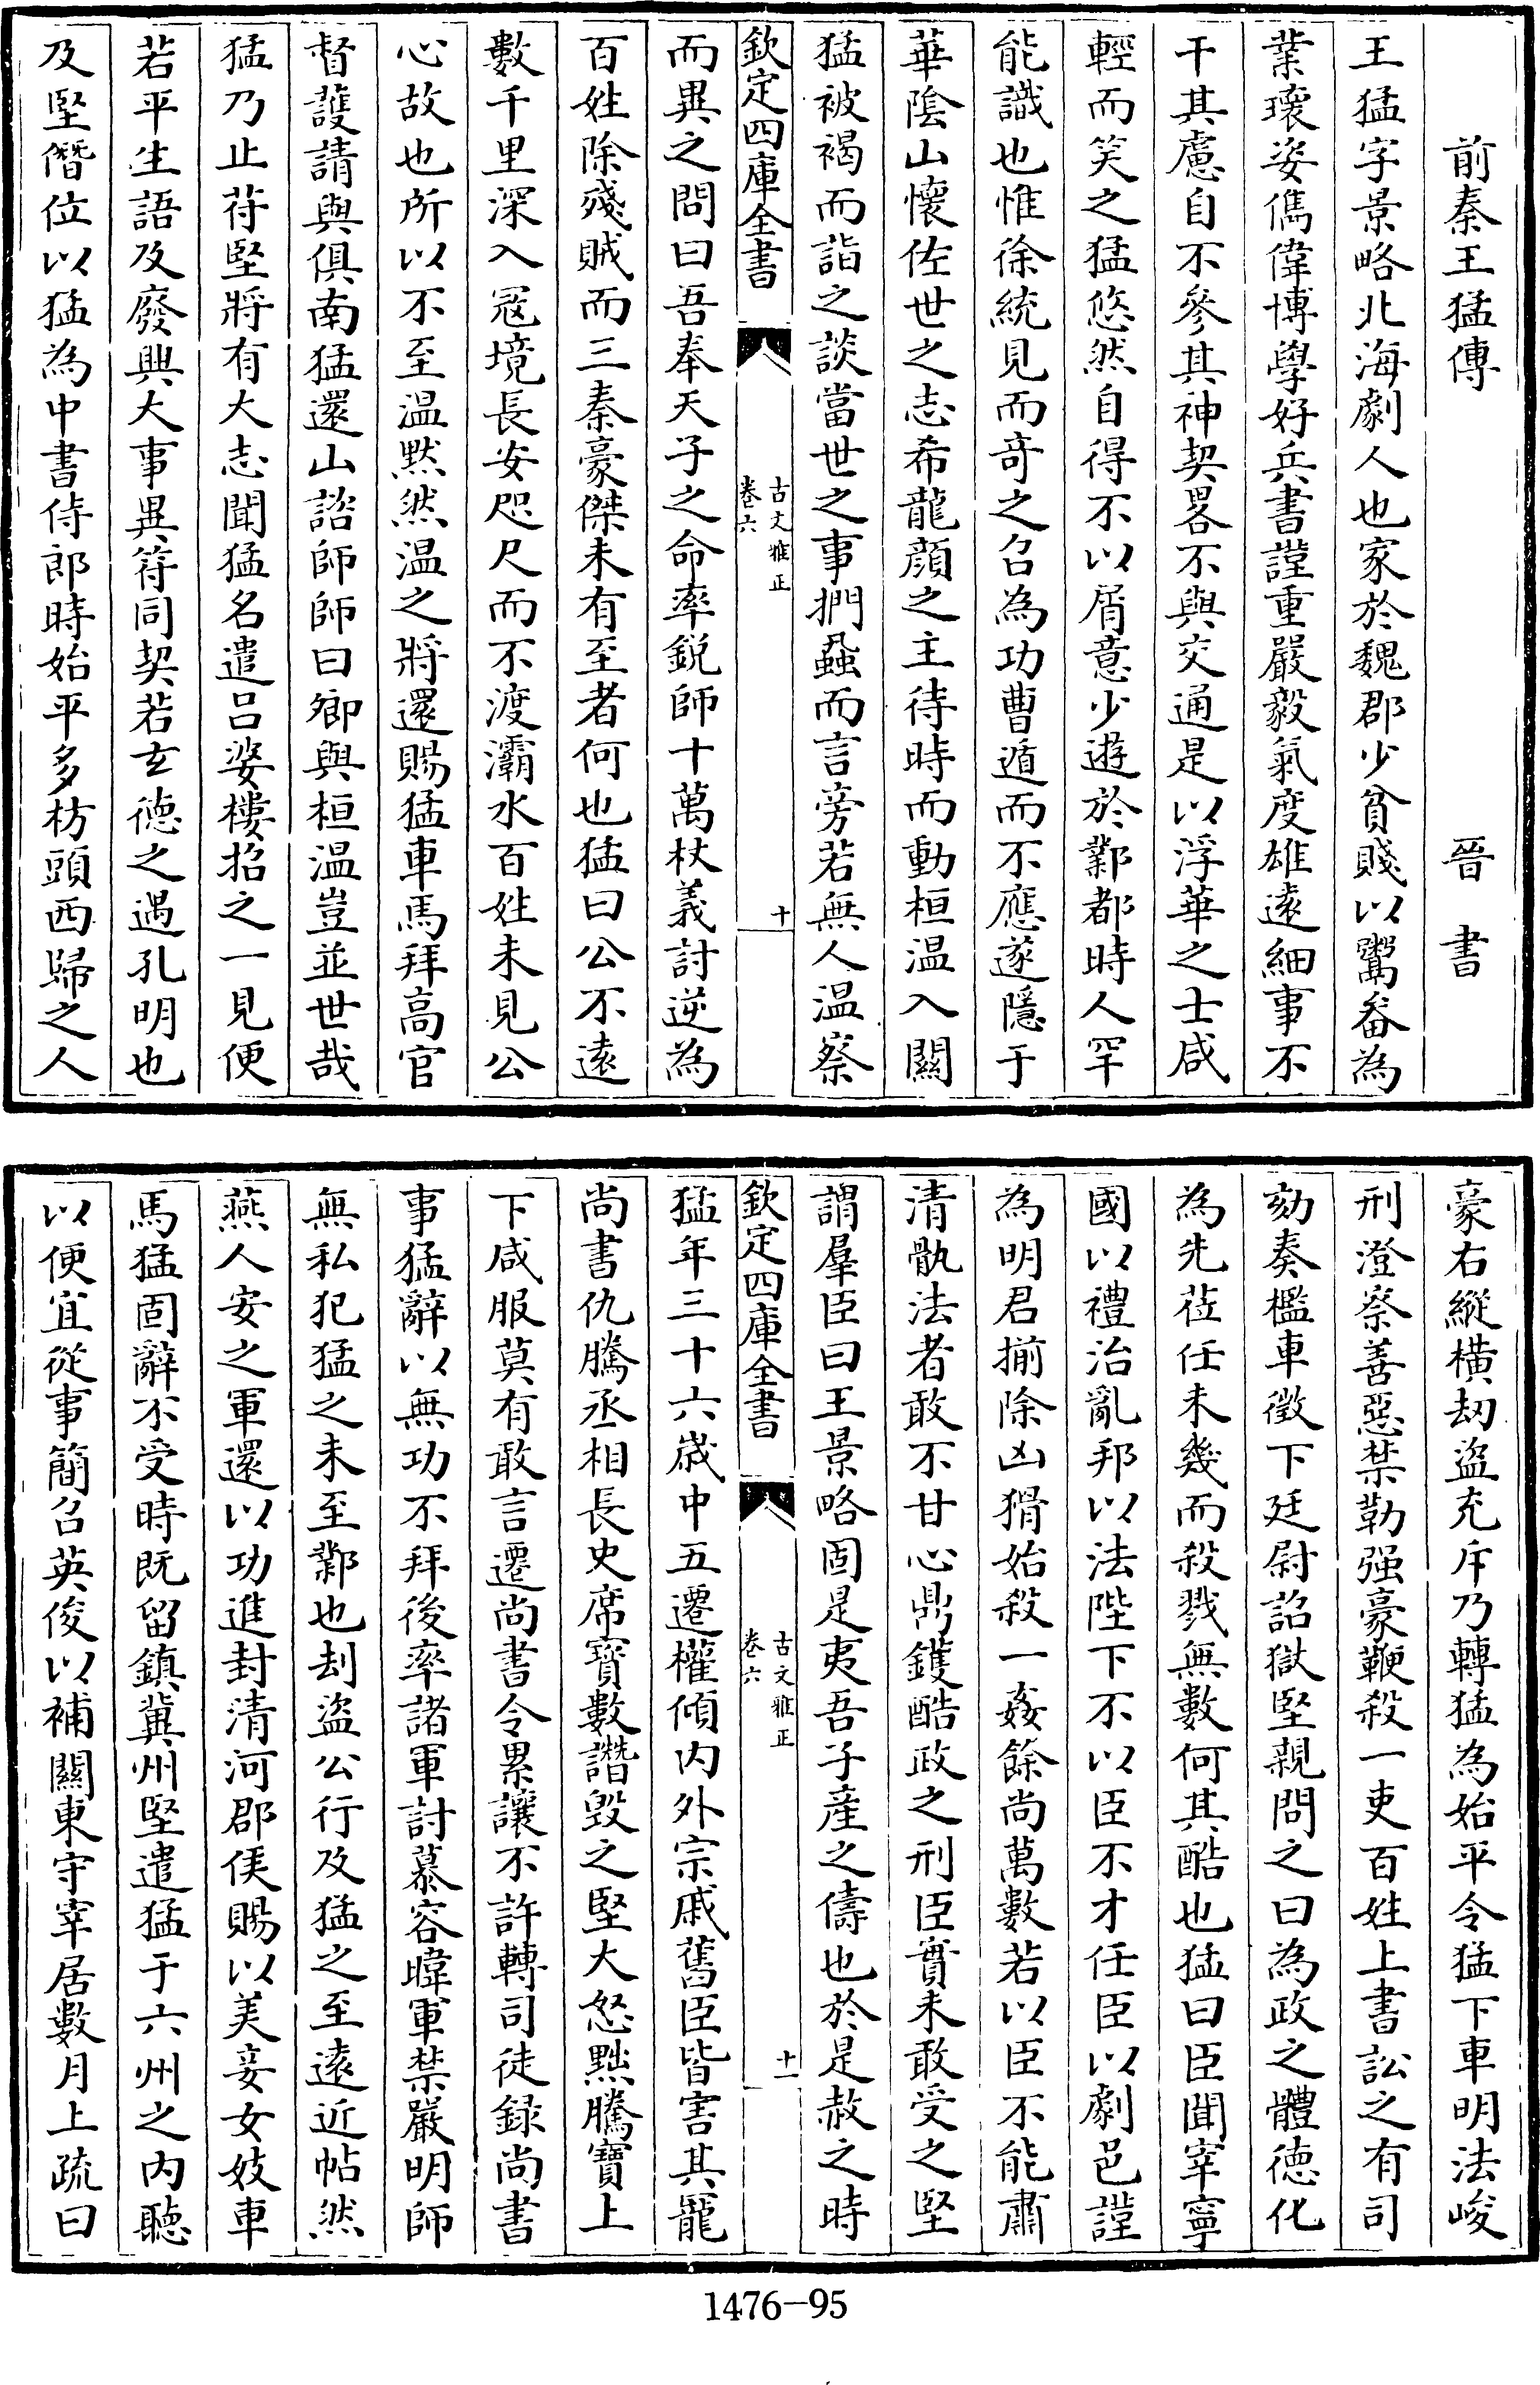 前秦王猛傳　晉書
王猛字景略北海劇人也家於魏郡少貧賤以鬻畚為
業瓌姿儁偉博學好兵書謹重嚴毅氣度雄遠細事不
干其慮自不參其神契畧不與交通是以浮華之士咸
輕而笑之猛悠然自得不以屑意少遊於鄴都時人罕
能識也惟徐統見而奇之召為功曹遁而不應遂隱于
華陰山懷佐世之志希龍顏之主待時而動桓温入關
猛被褐而詣之談當世之事捫蝨而言旁若無人温察
欽定四庫全書
古文雅正
卷六
十
而異之問曰吾奉天子之命率銳師十萬杖義討逆為
百姓除殘賊而三秦豪傑未有至者何也猛曰公不遠
數千里深入冦境長安咫尺而不渡灞水百姓未見公
心故也所以不至温黙然温之將還賜猛車馬拜高官
督護請與俱南猛還山諮師師曰卿與桓温豈並世哉
猛乃止苻堅將有大志聞猛名遣吕婆樓招之一見便
若平生語及廢興大事異符同契若玄德之遇孔明也
及堅僭位以猛為中書侍郎時始平多枋頭西歸之人
豪右縱橫刼盜充斥乃轉猛為始平令猛下車明法峻
刑澄察善惡禁勒强豪鞭殺一吏百姓上書訟之有司
劾奏檻車徵下廷尉詔獄堅親問之曰為政之體德化
為先莅任未幾而殺戮無數何其酷也猛曰臣聞宰寧
國以禮治亂邦以法陛下不以臣不才任臣以劇邑謹
為明君揃除凶猾始殺一姦餘尚萬數若以臣不能肅
清軌法者敢不甘心鼎鑊酷政之刑臣實未敢受之堅
謂羣臣曰王景略固是夷吾子産之儔也於是赦之時
欽定四庫全書
古文雅正
卷六
十一
猛年三十六歲中五遷權傾内外宗戚舊臣皆害其寵
尚書仇騰丞相長史席寳數譖毁之堅大怒黜騰寳上
下咸服莫有敢言遷尚書令累讓不許轉司徒録尚書
事猛辭以無功不拜後率諸軍討慕容暐軍禁嚴明師
無私犯猛之未至鄴也刦盜公行及猛之至遠近帖然
燕人安之軍還以功進封清河郡侯賜以美妾女妓車
馬猛固辭不受時既留鎮冀州堅遣猛于六州之内聽
以便宜從事簡召英俊以補關東守宰居數月上疏曰
1476-95